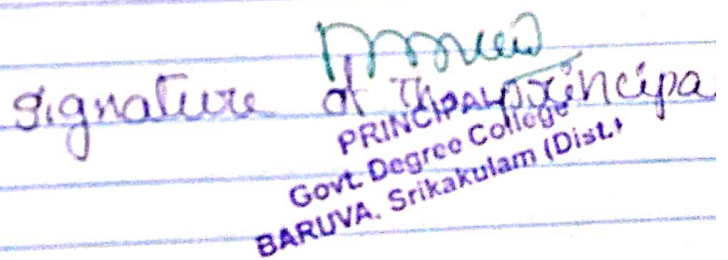 Signature of The principa
PRINCIPAL
Govt. Degree College
BARUVA. Srikakulam (Dist.)